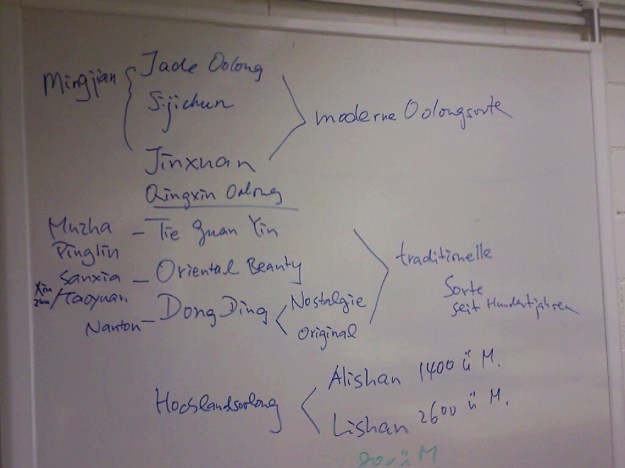 Mingjian { Jade Oolong
Sijichun
moderne Oolongsorte
Jinxuan
Qingxin Oolong
Muzha - Tie Guan Yin
Pinglin
traditionelle
Sanxia - Oriental Beauty
Sorte
/Taoyuan
seit Hundertjahren
Nanton - Dong Ding < Nostalgie
Original
Hochlandsoolong < Alishan 1400 ü M.
Lishan 2600 ü M.
ü M